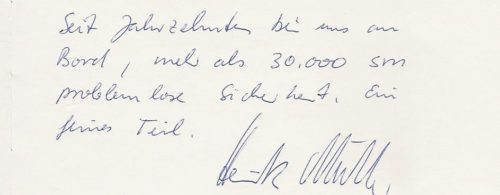 Seit Jahrzehnten bei uns an
Bord, mehr als 30.000 sm
problemlose Sicherheit. Ein
feines Teil.